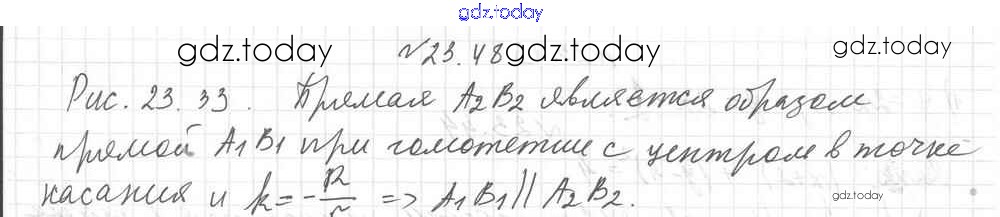 gdz.today
gdz.today №23.48 gdz.today
Рис. 23.33. Прямая A₂B₂ является образом
прямой A₁B₁ при гомотетии с центром в точке
касания и k = -R/r => A₁B₁ || A₂B₂.
gdz.today